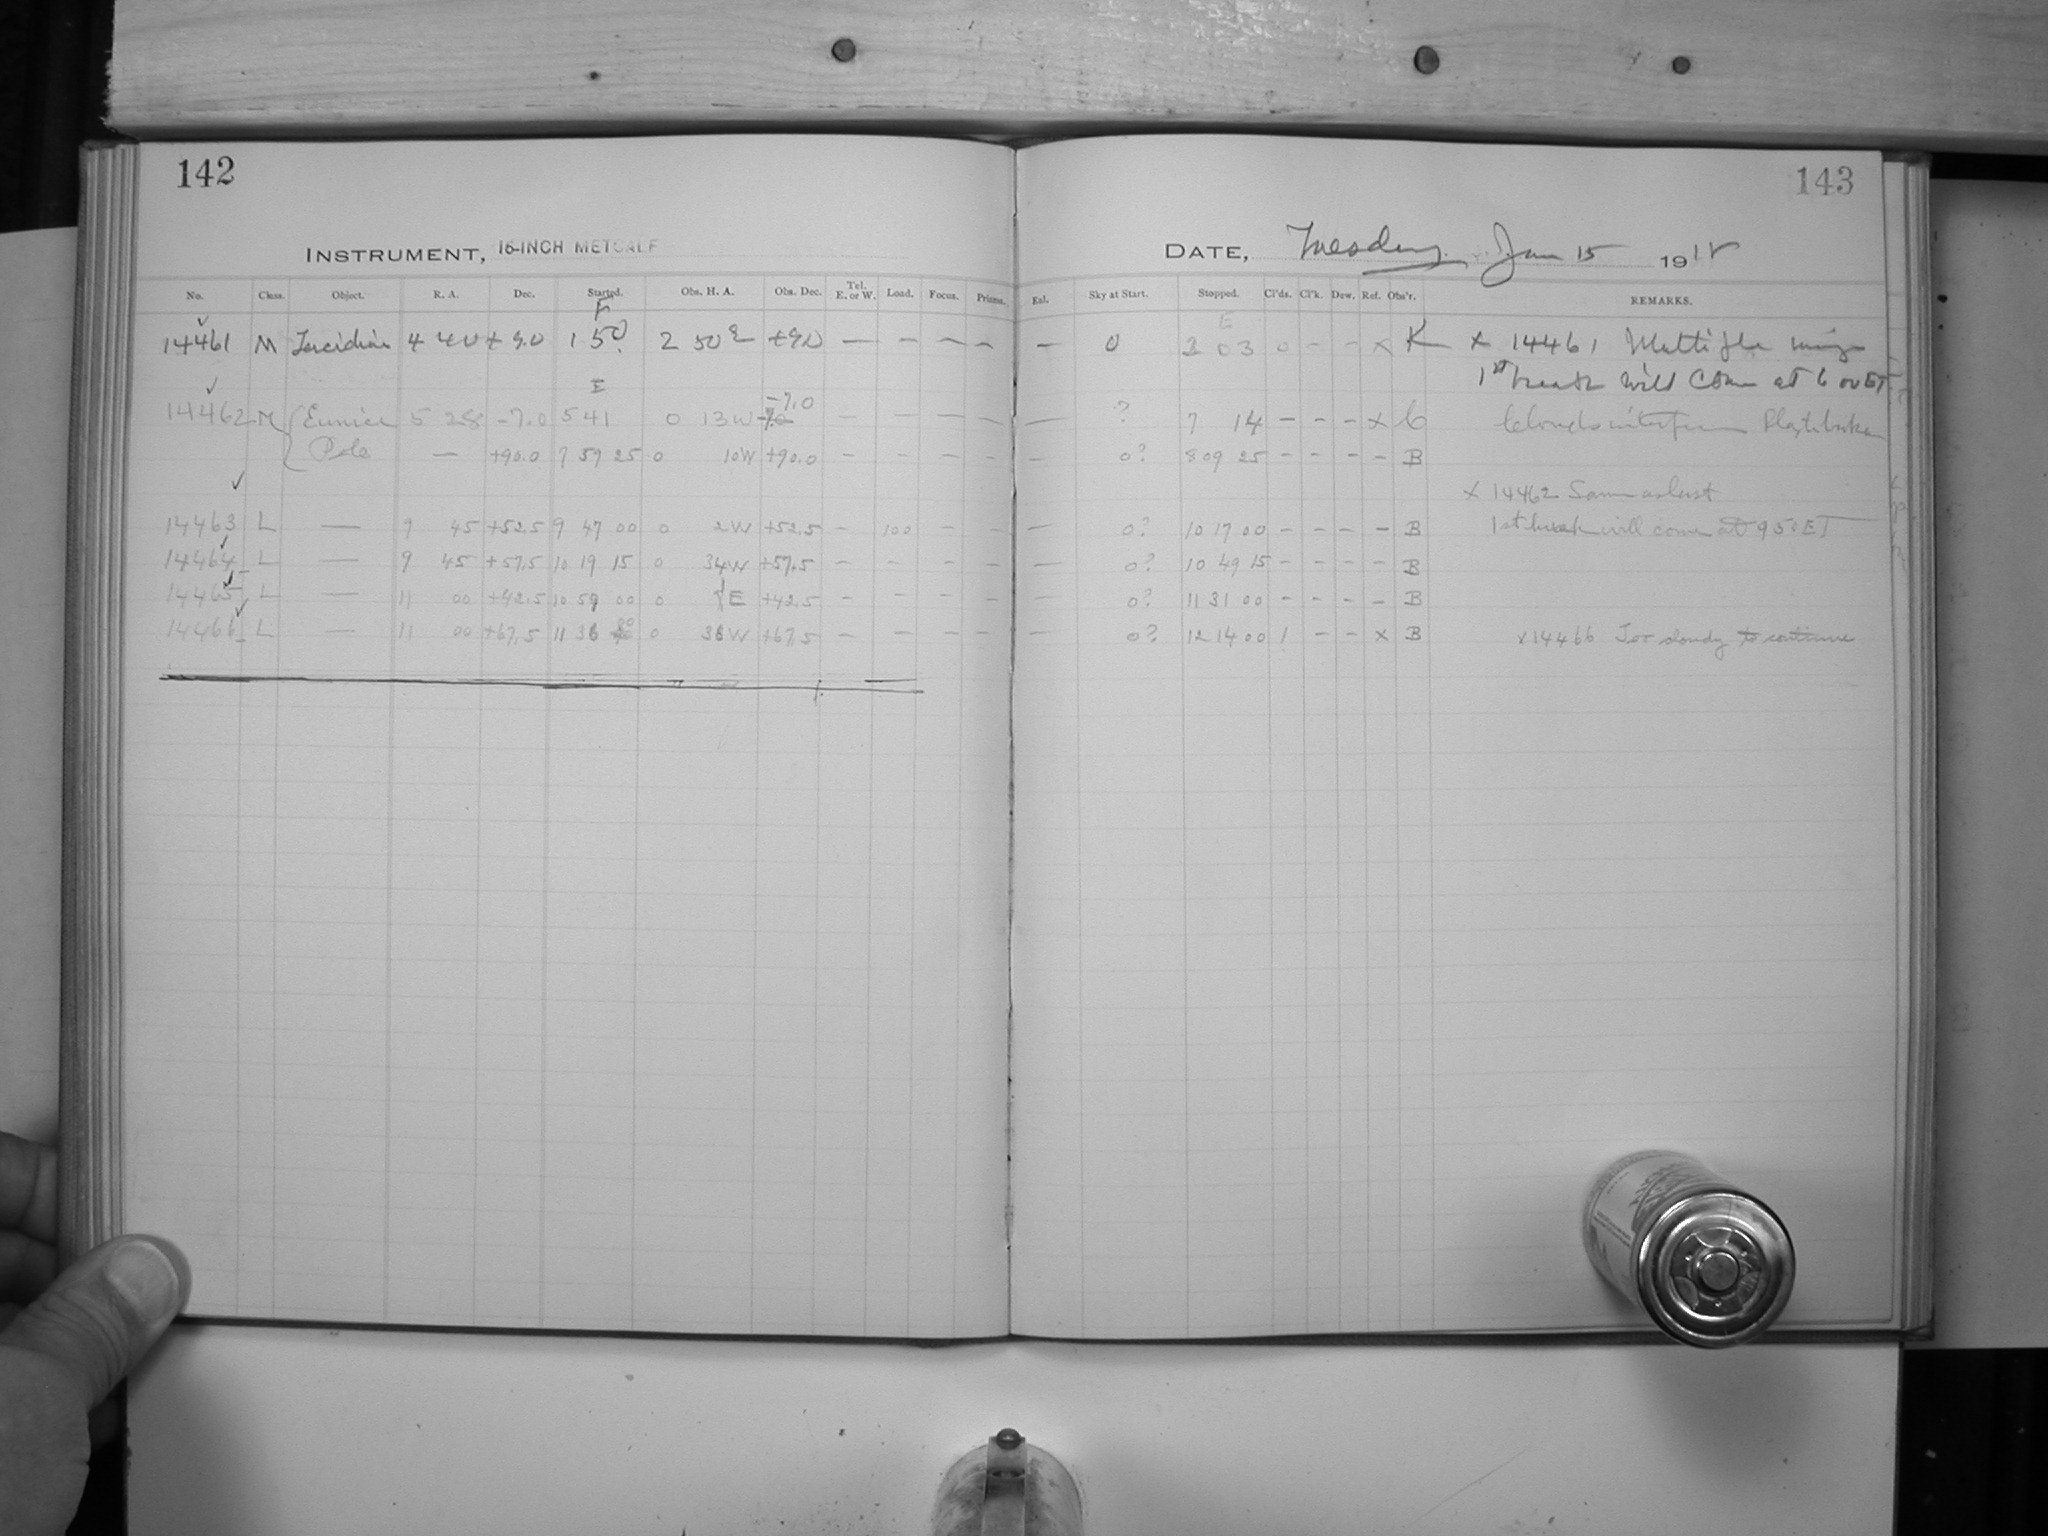 142
143
INSTRUMENT, 16-INCH METCALF
DATE, Tuesday Jan 15 1918
No. Class. Object. R. A. Dec. Started. Obs. H. A. Obs. Dec. Tel. E. or W. Load. Focus. Prisms. Exl. Sky at Start. Stopped. Cl'ds. Cl'k. Dew. Ref. Obs'r. REMARKS.
E E
14461 M 4 40 + 9.0 1 50 2 50 +9.0 — — — — — 0 3 03 0 - - x K x 14461 Multiple
1st break will come at 6 00 ET
E -7.0
14462 M Eunice 5 28 -7.0 5 41 0 13 W — — — — — ? 7 14 - - - x C Clouds Plate broken
Pole — +90.0 7 59 25 0 10W +90.0 - - - - — 0? 8 09 25 - - - - B
x 14462 Same as last
14463 L — 9 45 +52.5 9 47 00 0 2W +52.5 - 100 - - — 0? 10 17 00 - - - - B 1st break will come at 9 50 ET
14464 L — 9 45 +57.5 10 19 15 0 34W +57.5 - - - - — 0? 10 49 15 - - - - B
14465 L — 11 00 +42.5 10 59 00 0 E +42.5 - - - - — 0? 11 31 00 - - - - B
14466 L — 11 00 +67.5 11 36 00 0 36 W +67.5 - - - - — 0? 12 14 00 1 - - x B x 14466 Too cloudy to continue